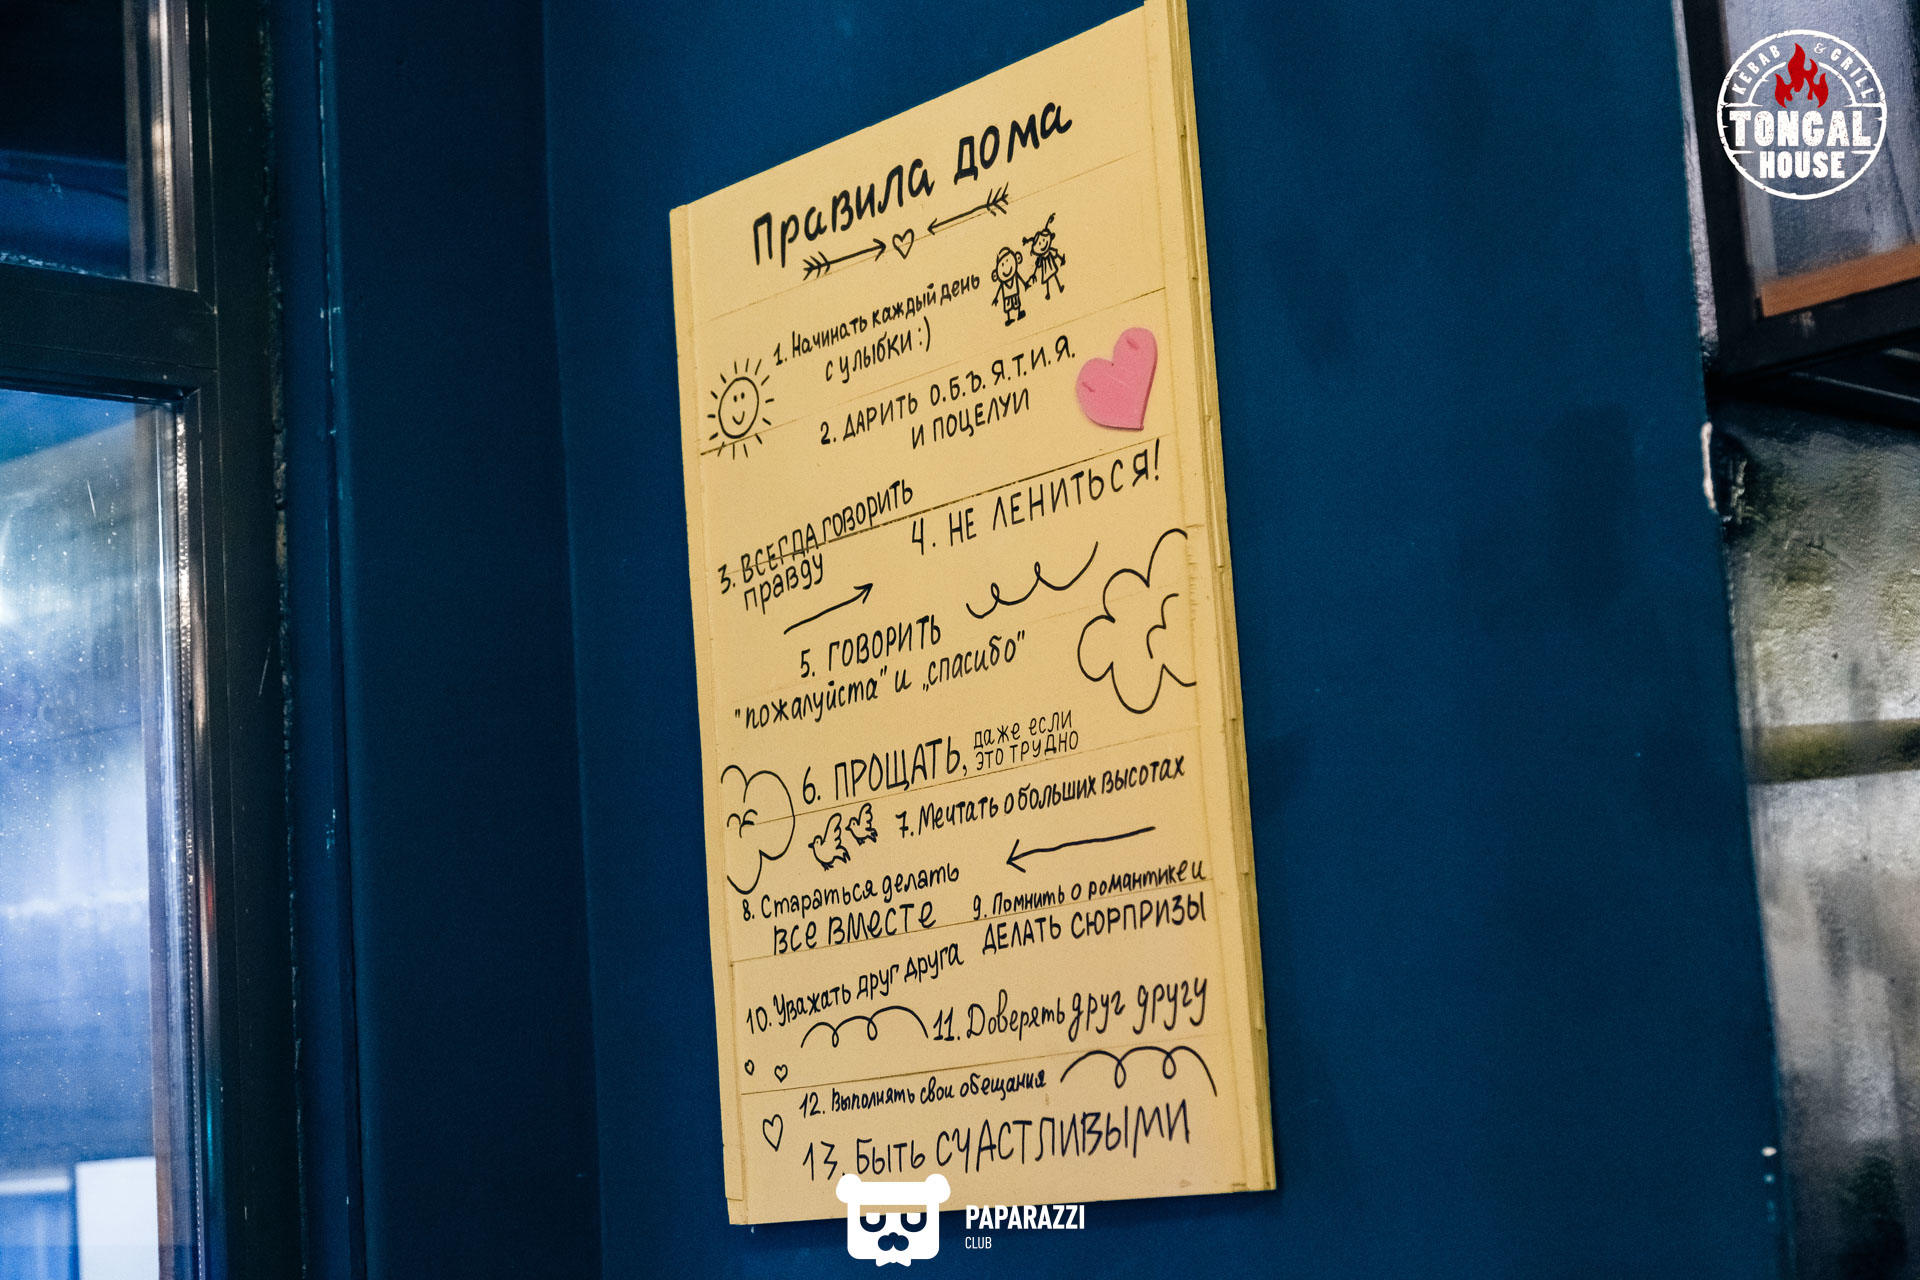 Правила дома
1. Начинать каждый день
с улыбки :)
2. ДАРИТЬ О.Б.Ъ.Я.Т.И.Я.
И ПОЦЕЛУИ
3. ВСЕГДА ГОВОРИТЬ
правду
4. НЕ ЛЕНИТЬСЯ!
5. ГОВОРИТЬ
"пожалуйста" и „спасибо"
6. ПРОЩАТЬ, даже если
ЭТО ТРУДНО
7. Мечтать о больших высотах
8. Стараться делать
все вместе
9. Помнить о романтике и
ДЕЛАТЬ СЮРПРИЗЫ
10. Уважать друг друга
11. Доверять друг другу
12. Выполнять свои обещания
13. Быть СЧАСТЛИВЫМИ
KEBAB & GRILL
TONGAL
HOUSE
PAPARAZZI
CLUB